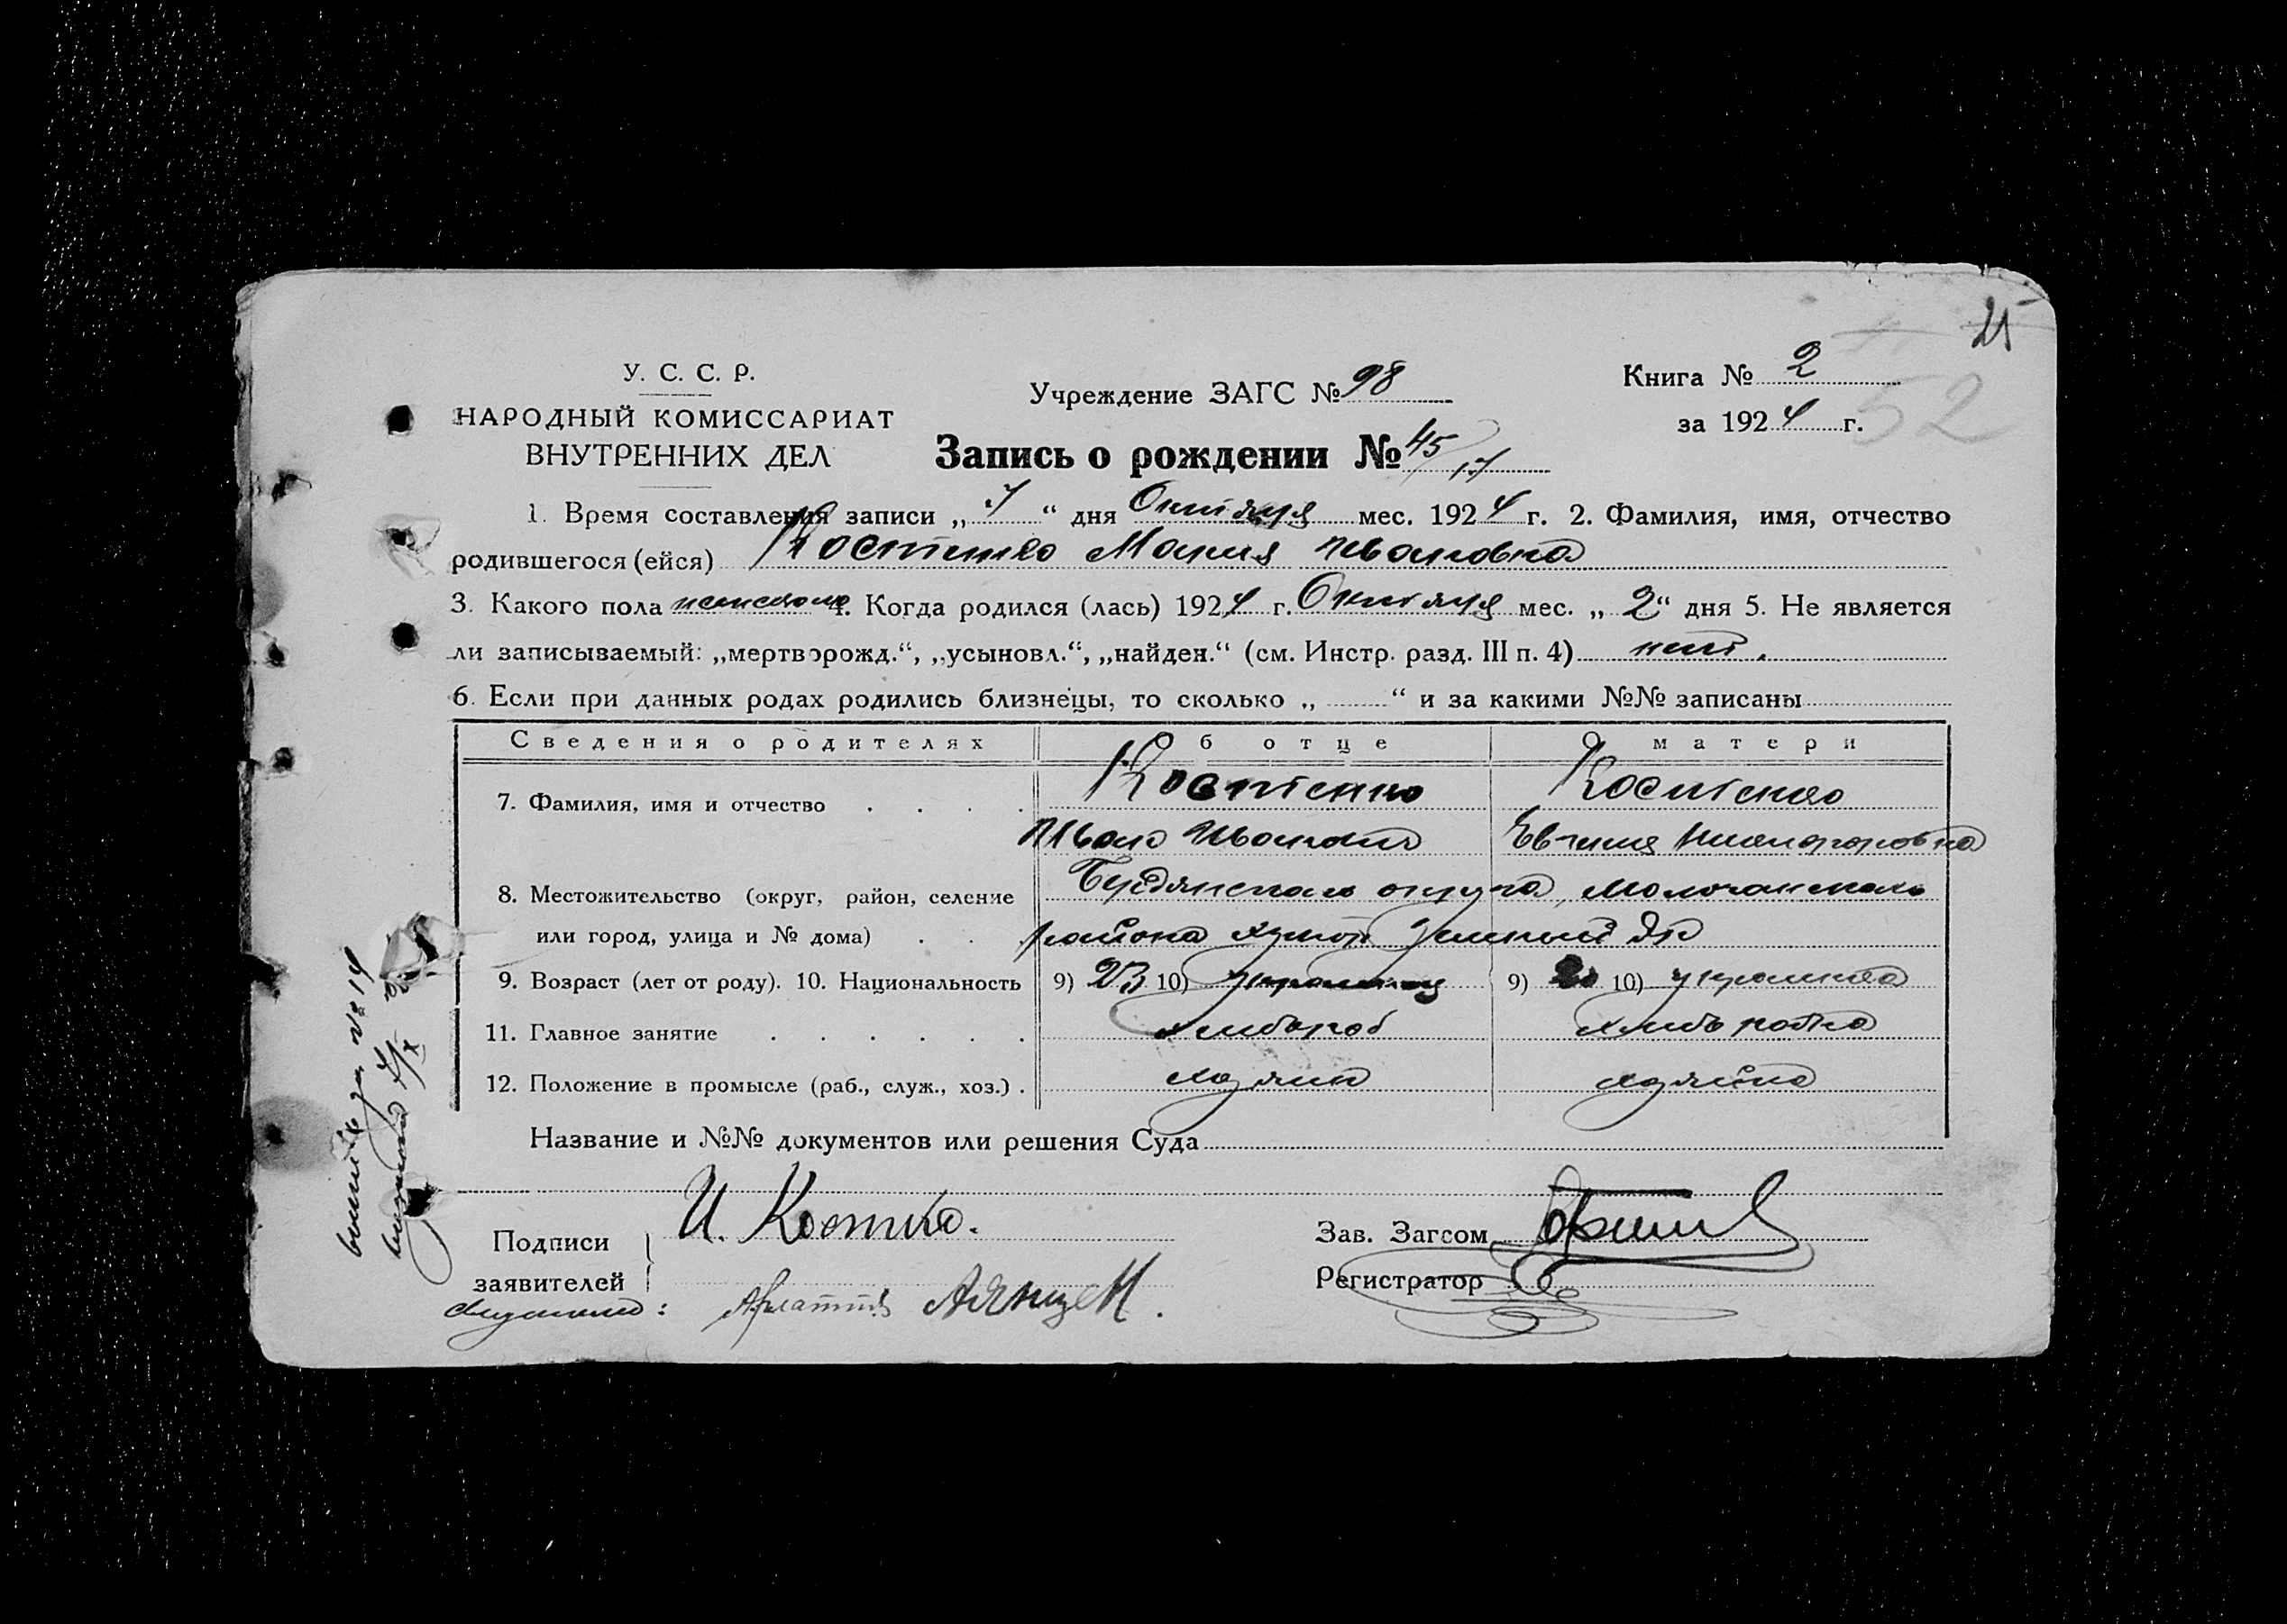 25
У. С. С. Р.
НАРОДНЫЙ КОМИССАРИАТ
ВНУТРЕННИХ ДЕЛ
Учреждение ЗАГС № 98
Книга № 2
за 1924 г.
52
Запись о рождении № 45
1. Время составления записи „ 7 “ дня Октября мес. 1924 г. 2. Фамилия, имя, отчество
родившегося (ейся) Костенко Мария Ивановна
3. Какого пола женского 4. Когда родился (лась) 1924 г. Октября мес. „ 2 “ дня 5. Не является
ли записываемый: „мертворожд.“, „усыновл.“, „найден.“ (см. Инстр. разд. III п. 4) нет.
6. Если при данных родах родились близнецы, то сколько „ “ и за какими №№ записаны
Сведения о родителях Об отце О матери
7. Фамилия, имя и отчество . . . . Костенко Костенко
Иван Иванович Евгения Никаноровна
8. Местожительство (округ, район, селение Бердянского округа, Молочанского
или город, улица и № дома) . . района хутор
9. Возраст (лет от роду). 10. Национальность 9) 23 10) украинец 9) 20 10) украинка
11. Главное занятие . . . . . . хлебороб хлеборобка
12. Положение в промысле (раб., служ., хоз.) . хозяин хозяйка
Название и №№ документов или решения Суда
Подписи
заявителей
И. Костенко.
Зав. Загсом
Регистратор
№ 14